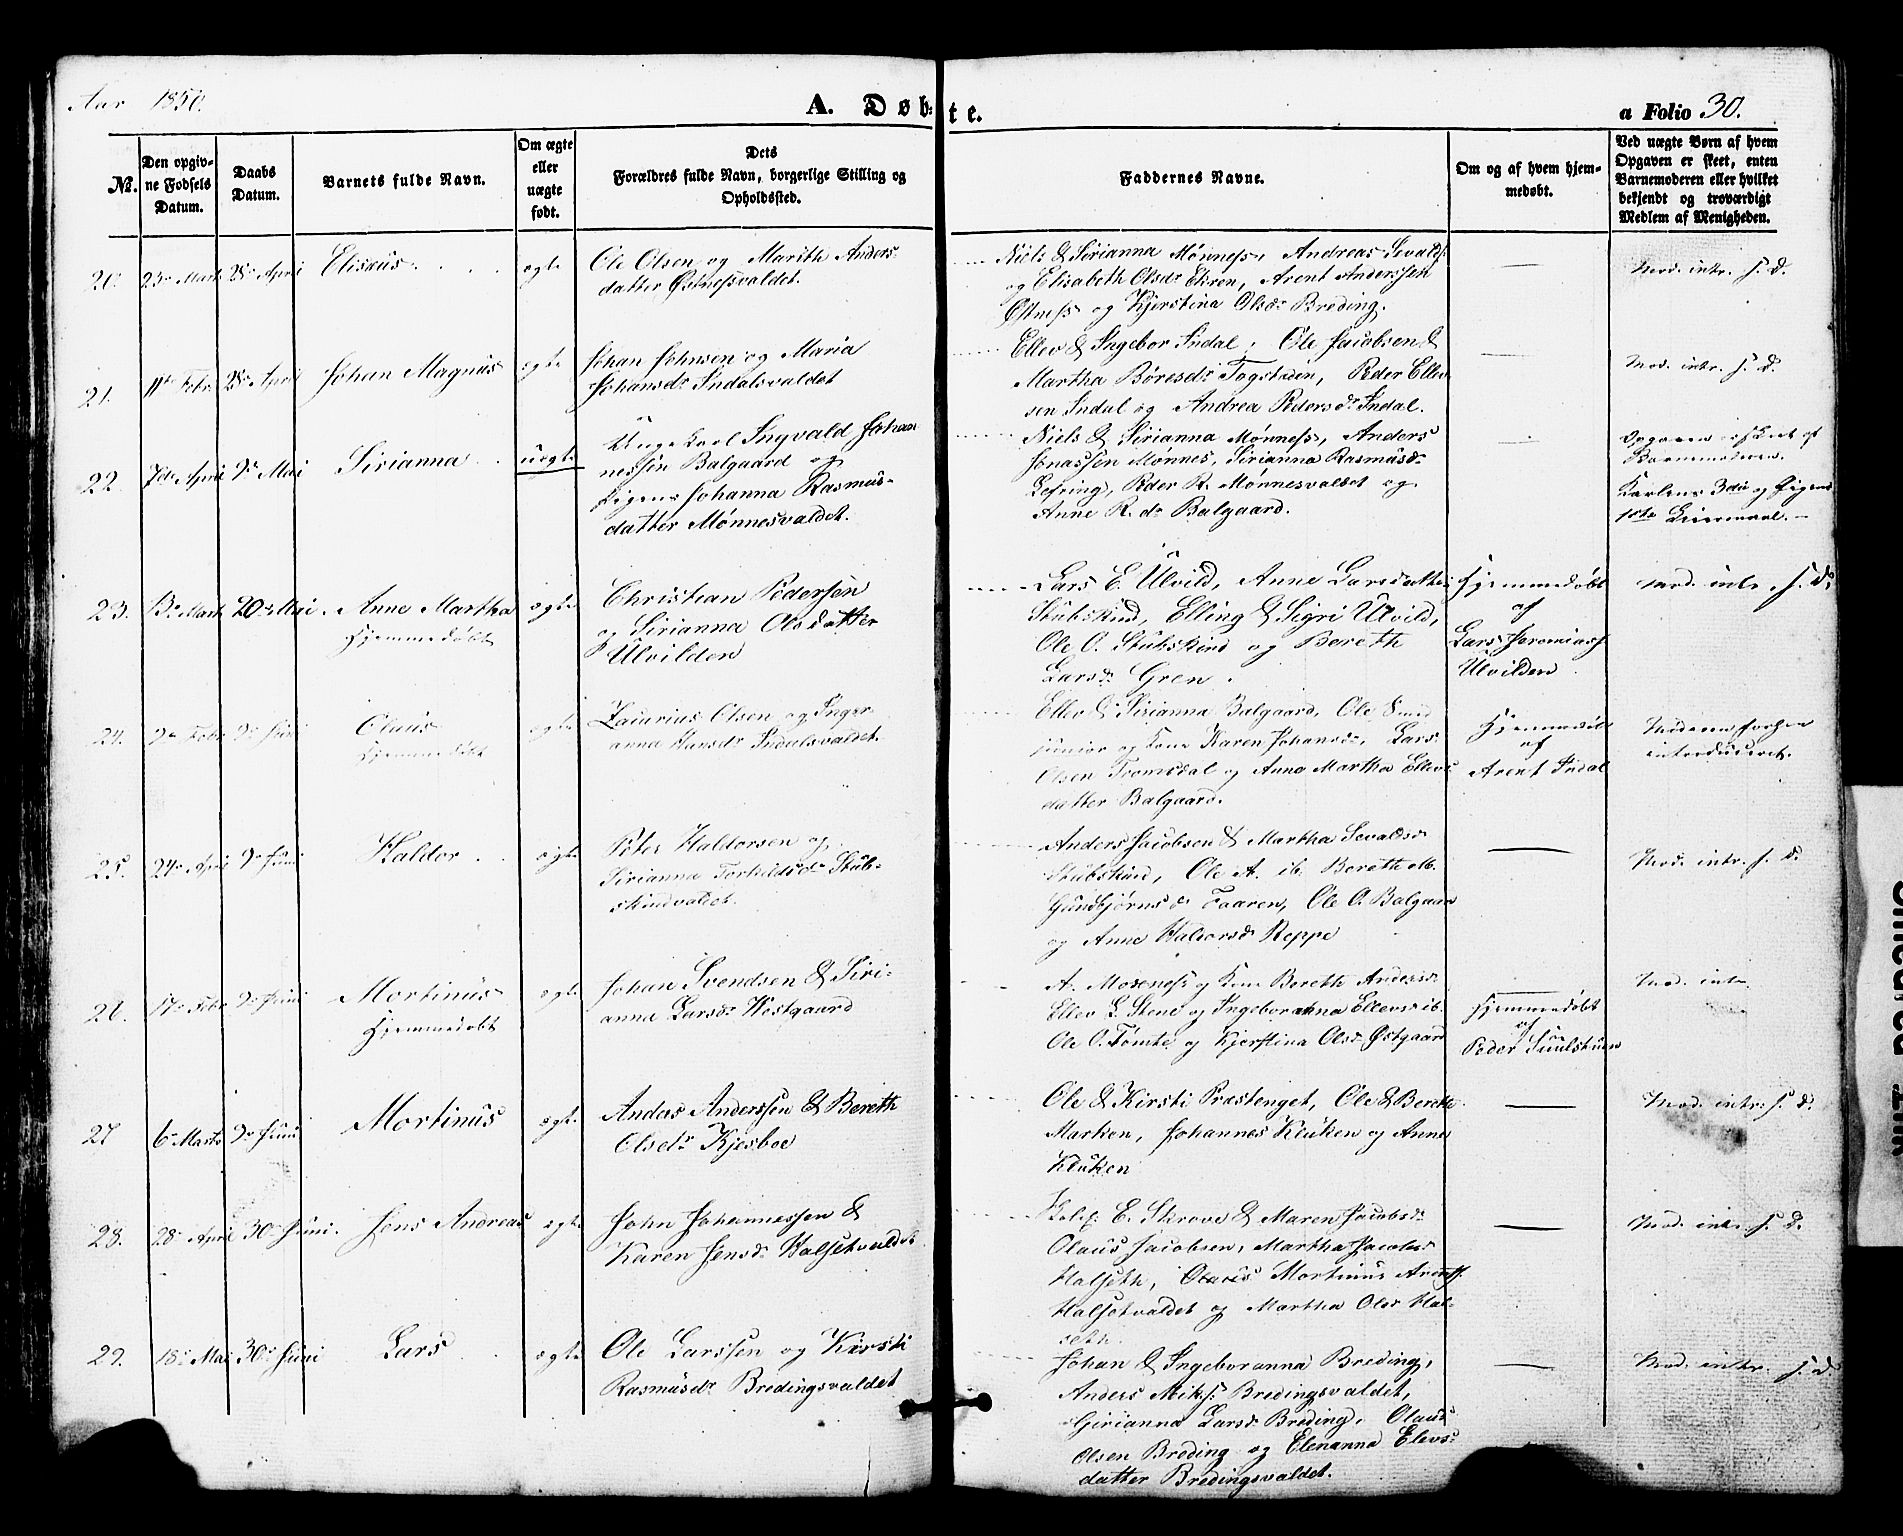 Aar 1850.
A. Døbte.
a Folio 30.
No.
Den opgiv-
ne Fødsels
Datum.
Daabs
Datum.
Barnets fulde Navn.
Om ægte
eller
uægte
født.
Dets
Forældres fulde Navn, borgerlige Stilling og
Opholdssted.
Faddernes Navne.
Om og af hvem hjem-
medøbt.
Ved uægte Børn af hvem
Opgaven er skeet, enten
Barnemoderen eller hvilket
bekjendt og troværdigt
Medlem af Menigheden.
20. 23de Marts 28de April Elisæus ægte
Ole Olsen og Marith Anders
datter Østnessvaldet.
Niels & Sirianna Mønness, Andreas Sevalds.
og Elisabeth Olsdr Ekren, Arent Anderssen
Østness og Kjerstina Olsdr Breding.
Mod. intr. s. D.
21. 11te Febr 28de April Johan Magnus ægte
Johan Johnsen og Maria
Johansdr Indalsvaldet
Ellev & Ingebor Indal, Ole Jacobsen &
Martha Böresdr Togstaden, Peder Ellev-
sen Indal og Andrea Pedersdr Indal.
Mod. intr. s. D.
22. 7de April 9de Mai Sirianna uægte
Ungekarl Ingvald Johan
nessen Balgaard og
Pigen Johanna Rasmus-
datter Mönnesvaldet.
Niels & Sirianna Mønness, Anders
Jonassen Mønnes, Sirianna Rasmusdr
Lefring, Peder R. Mönnesvaldet og
Anne R. dr Balgaard.
Opgaven er skeet af
Barnemoderen.
Karlens 3die og Pigens
1ste Leiermaal.
23. 13de Marts 20de Mai. Anne Martha ægte
Hjemmedøbt
Christian Pedersen
og Sirianna Olsdatter
Ulvilden
Lars E. Ulvild, Anne Larsdatter
Stubskind, Elling & Sigri Ulvild,
Ole O. Stubskind og Bereth
Larsdr Gren.
Hjemmedøbt
af
Lars Jeremiass
Ulvilden
Mod. intr. s. D.
24. 9de Febr 9de Juni Olaus ægte
Hjemmedøbt
Zacarias Olsen og Inger
anna Hansdr Indalsvaldet.
Ellev & Sirianna Balgaard, Ole
junior og Kone Karen Johansdr, Lars
Olsen Tromsdal og Anne Martha Ellevs
datter Balgaard.
Hjemmedøbt
af
Arent Indal
Moderen forhen
introduceret.
25. 24de April 9de Juni Haldor ægte
Peter Haldorsen og
Sirianna Torkildsdr Stub-
skindvaldet.
Anders Jacobsen & Martha Sevaldsdr
Stubskind, Ole A. ib. Bereth
Gundbjörnsdr Faaren, Ole O. Balgaard
og Anne Haldorsdr Reppe
Mod. intr. s. D.
26. 17de Febr 9de Juni Mortinus ægte
Hjemmedøbt
Johan Svendsen & Siri-
anna Larsdr Vestgaard
A. Moseness og Kone Bereth Andersdr
Ellev L. Stene og Ingeboranna Ellevsdr ib.
Ole O. Tömte og Kjerstina Olsdr Østgaard
Hjemmedøbt
af
Peder Suulstuen
Mod. intr.
27 6te Marts 9de Juni Mortinus ægte
Anders Anderssen & Bereth
Olsdr Kjesboe
Ole & Kirsti Præstenget, Ole & Bereth
Marken, Johannes Kluken og Anne
Kluken
Mod. intr. s. D.
28. 28de April 30te Juni. Jens Andreas ægte
John Johannessen &
Karen Jensdr Halsetvaldet
E. Skrove & Maren Jacobsdr
Olaus Jacobsen, Martha Jacobsdr
Halseth, Olaus Mortinus Arentss.
Halsetvaldet og Martha Olsdr Hal-
seth.
Mod. intr. s. D.
29. 18de Mai 30te Juni Lars ægte
Ole Larssen og Kirsti
Rasmusdr Bredingsvaldet
Johan & Ingeboranna Breding,
Anders Miks. Bredingsvaldet,
Girianna Larsdr Breding, Olaus
Olsen Breding og Elenanna Elevs-
datter Bredingsvaldet.
Mod. intr. s. D.